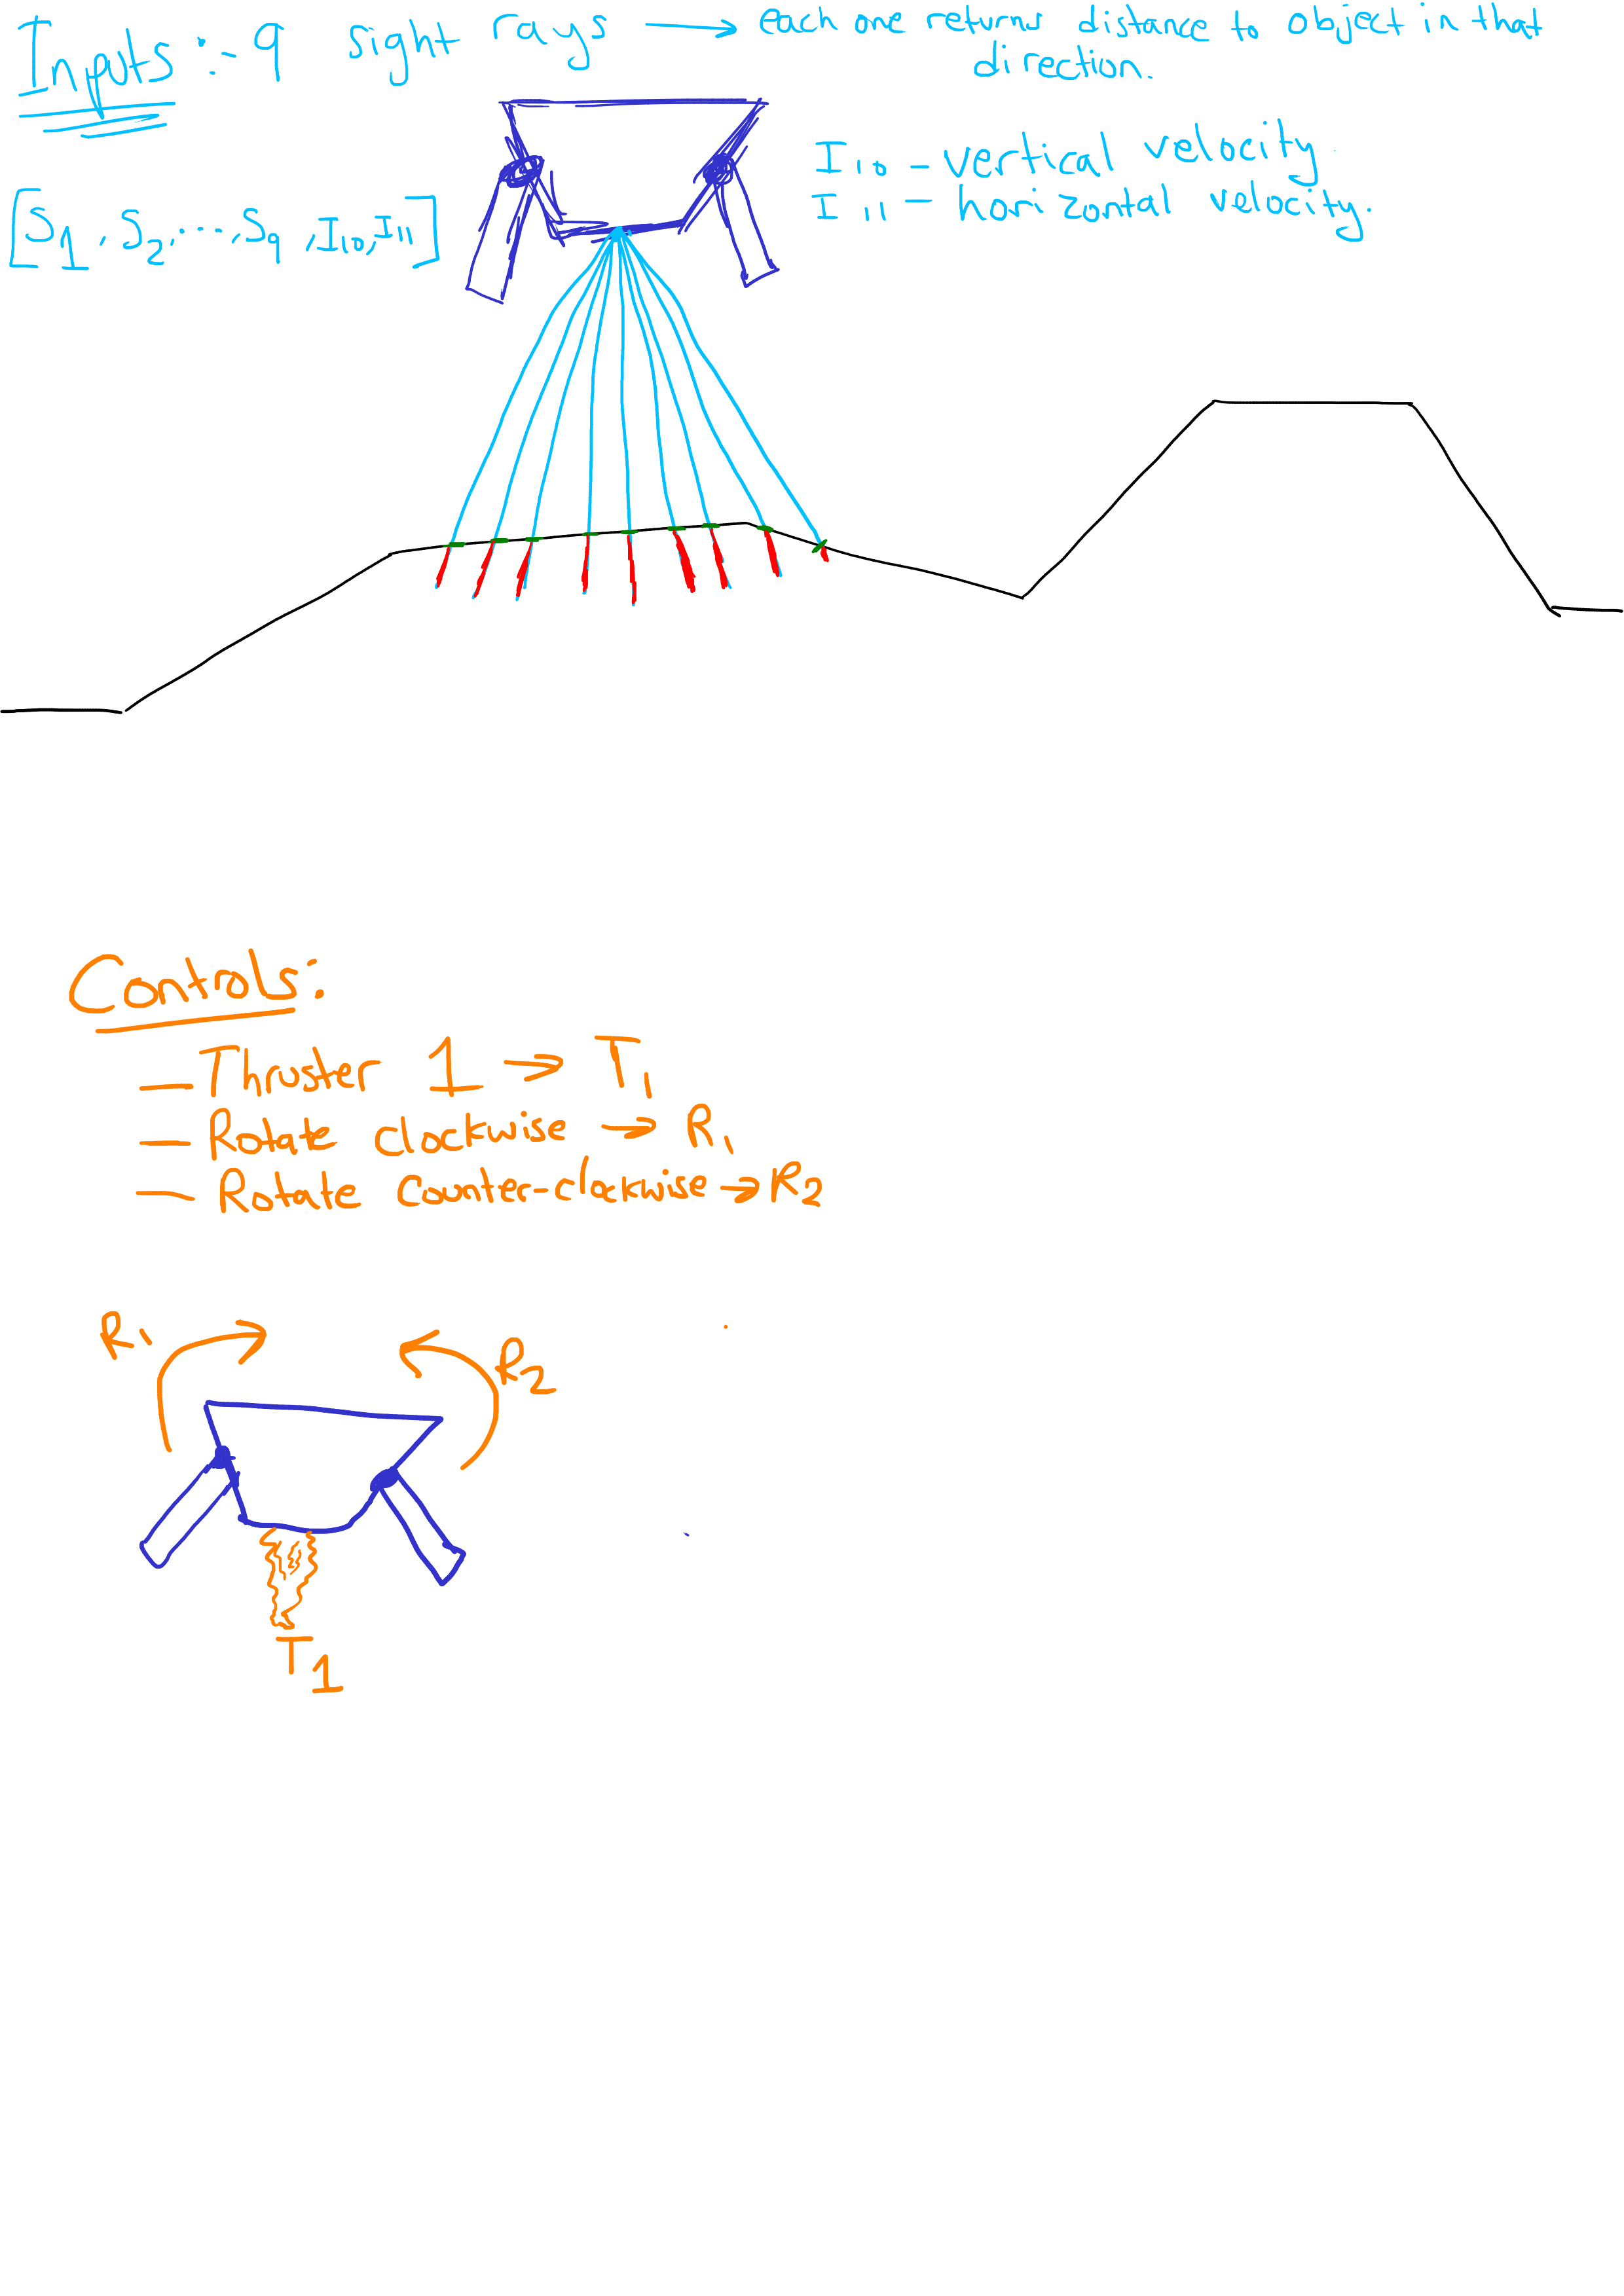 Inputs :- 9 sight rays → each one returns distance to object in that
direction.
I10 - vertical velocity
I11 - horizontal velocity.
[S1, S2, ..., S9, I10, I11]
Controls:
- Thruster 1 → T1
- Rotate clockwise → R1
- Rotate counter-clockwise → R2
R1
R2
T1